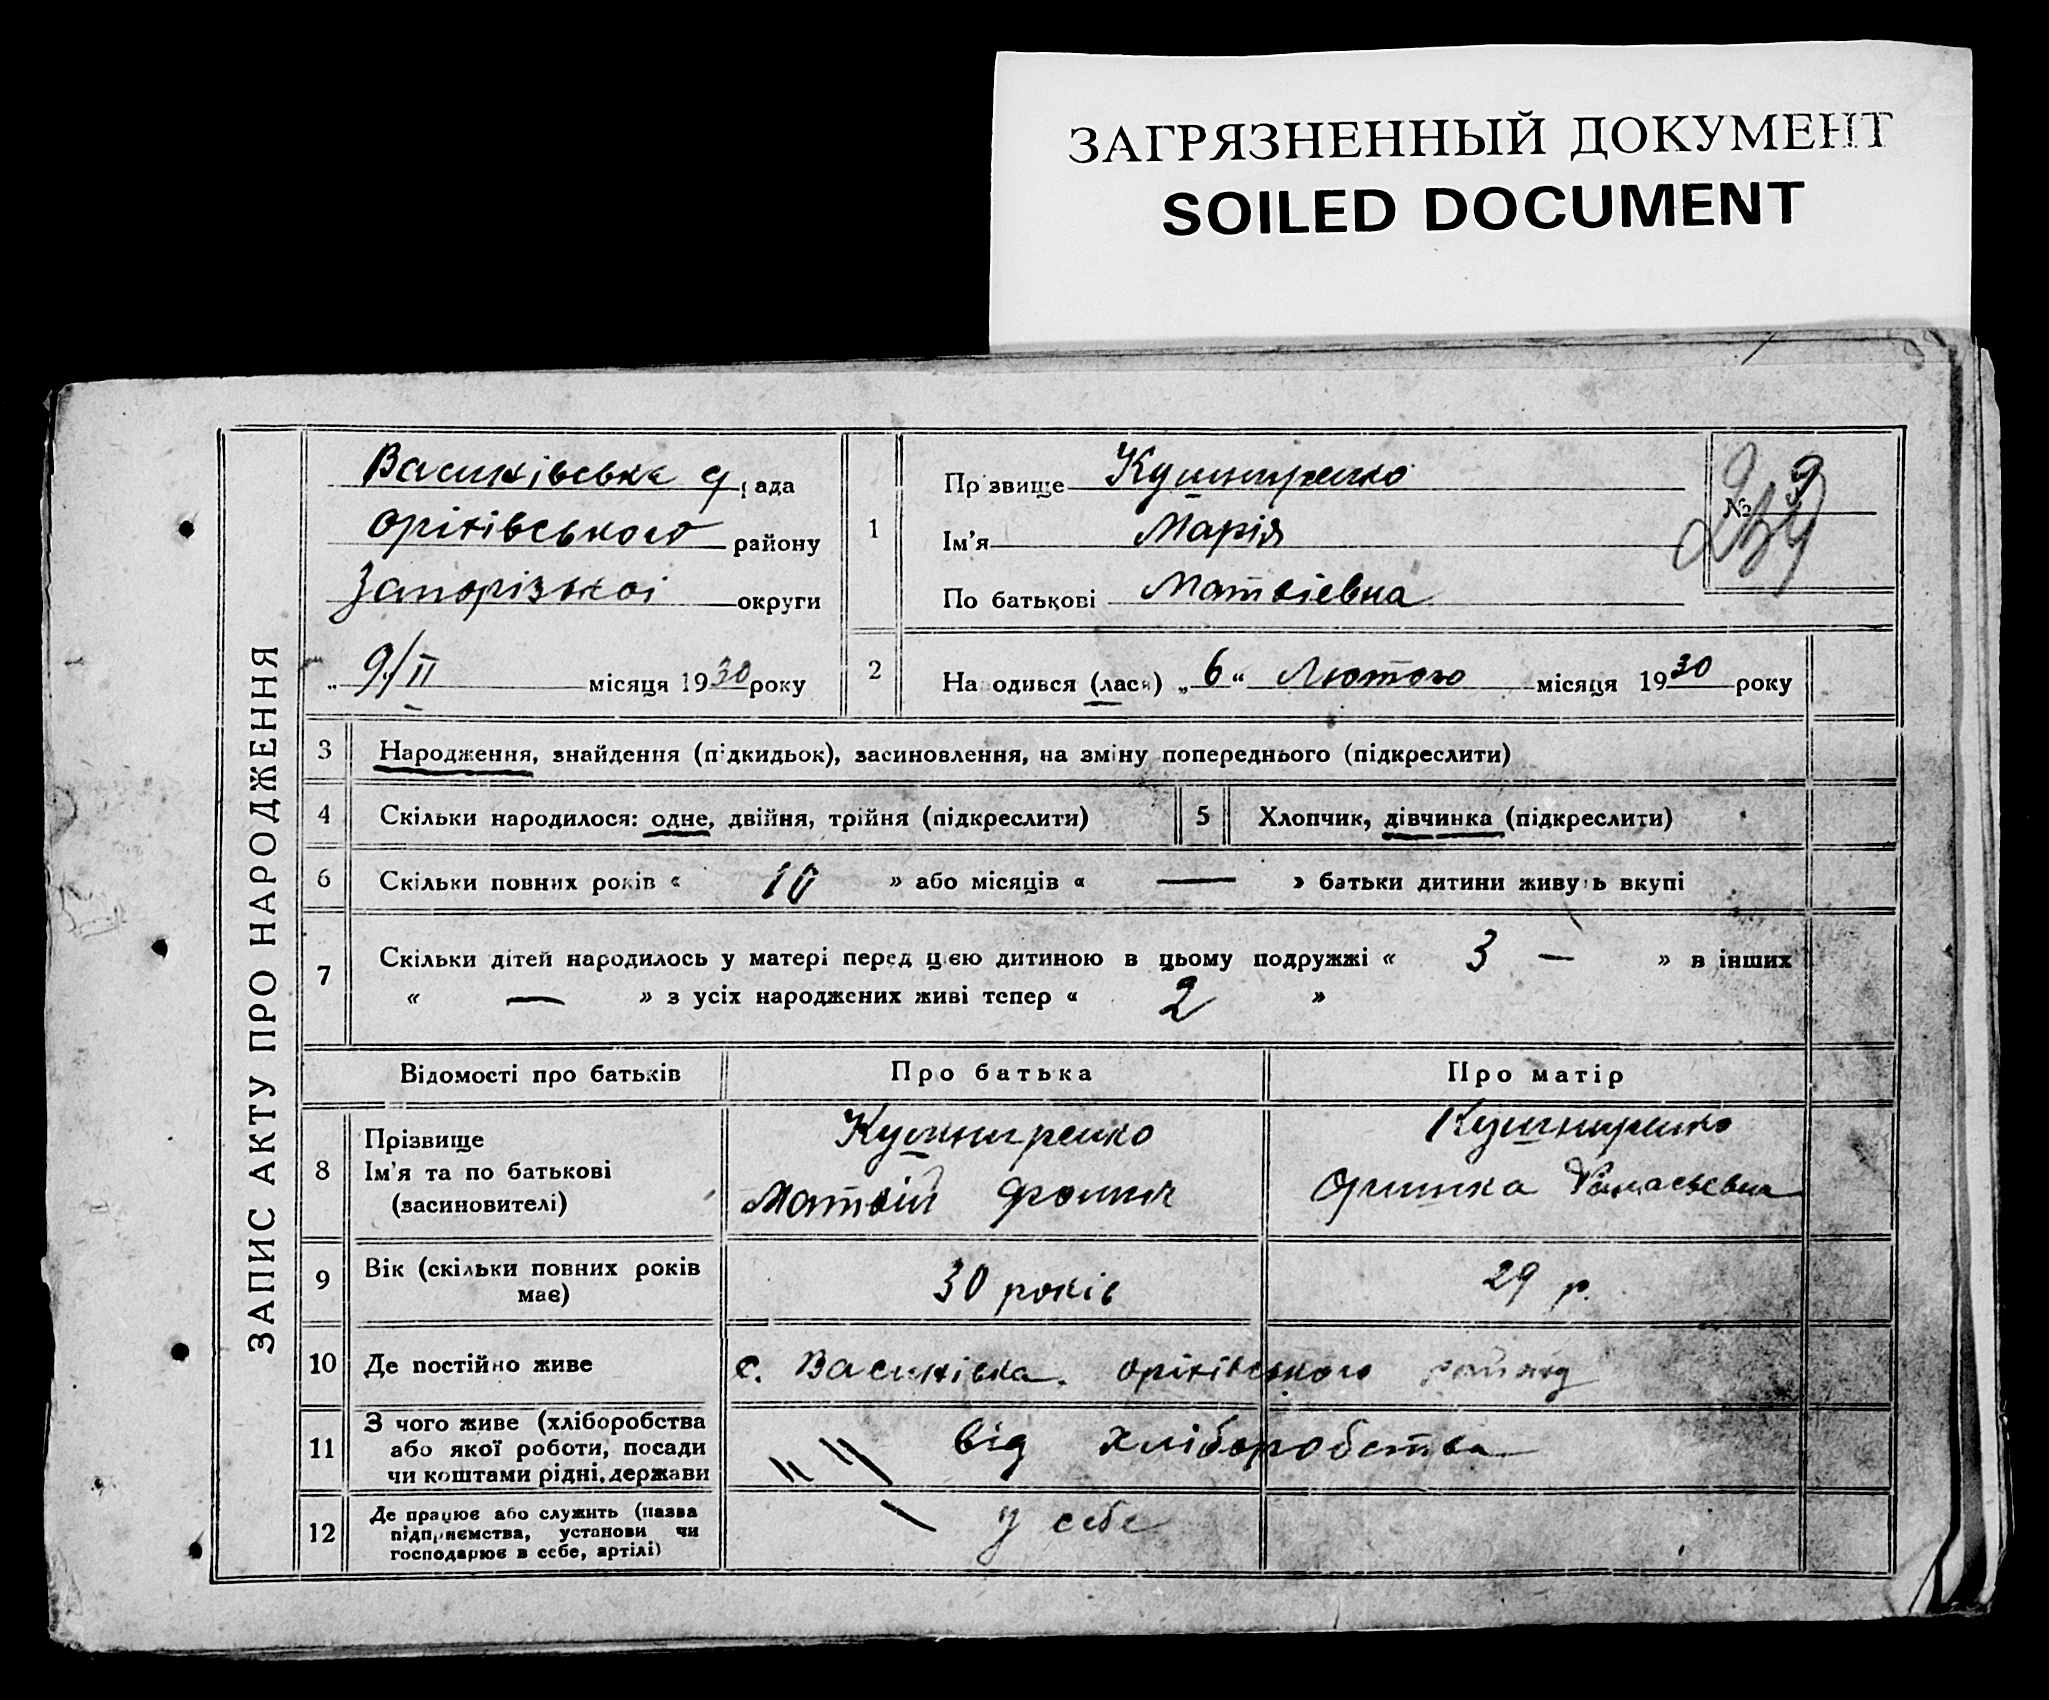 ЗАГРЯЗНЕННЫЙ ДОКУМЕНТ
SOILED DOCUMENT
ЗАПИС АКТУ ПРО НАРОДЖЕННЯ
Васинівська с/рада
Оріхівського району
Запорізькоі округи
„ 9/II місяця 1930 року
1
Прізвище Кушниренко
Ім'я Марія
По батькові Матвіевна
№ 9
2
Народився (лася) „6“ Лютого місяця 1930 року
3 Народження, знайдення (підкидьок), засиновлення, на зміну попереднього (підкреслити)
4 Скільки народилося: одне, двійня, трійня (підкреслити) 5 Хлопчик, дівчинка (підкреслити)
6 Скільки повних років « 10 » або місяців « — » батьки дитини живуть вкупі
7 Скільки дітей народилось у матері перед цією дитиною в цьому подружжі « 3 — » в інших
« — » з усіх народжених живі тепер « 2 »
Відомості про батьків Про батька Про матір
8 Прізвище Кушниренко Кушниренко
Ім'я та по батькові Матвій Фомич Оришка
(засиновителі)
9 Вік (скільки повних років має) 30 років 29 р.
10 Де постійно живе с. Васинівка. Оріхівського району
11 З чого живе (хліборобства
або якої роботи, посади від хліборобства
чи коштами рідні, держави
12 Де працює або служить (назва у себе
підприємства, установи чи
господарює в себе, артілі)